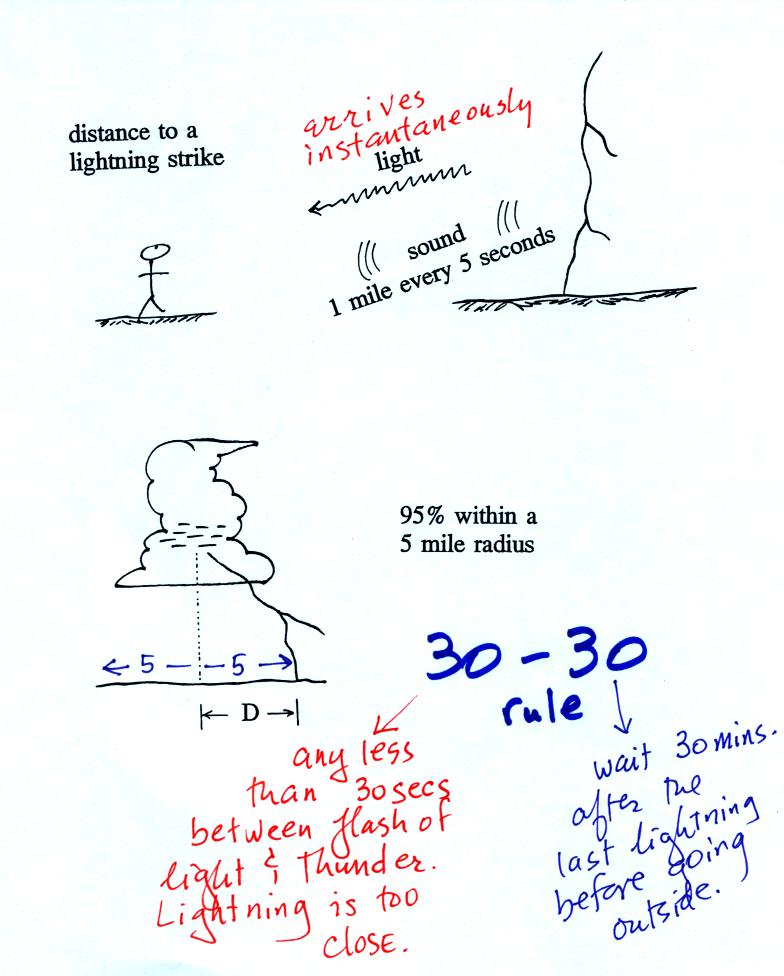 distance to a
lightning strike
arrives
instantaneously
light
sound
1 mile every 5 seconds
95% within a
5 mile radius
5 5
D
30-30
rule
any less
than 30 secs
between flash of
light & Thunder.
Lightning is too
CLOSE.
wait 30 mins.
after the
last lightning
before going
outside.